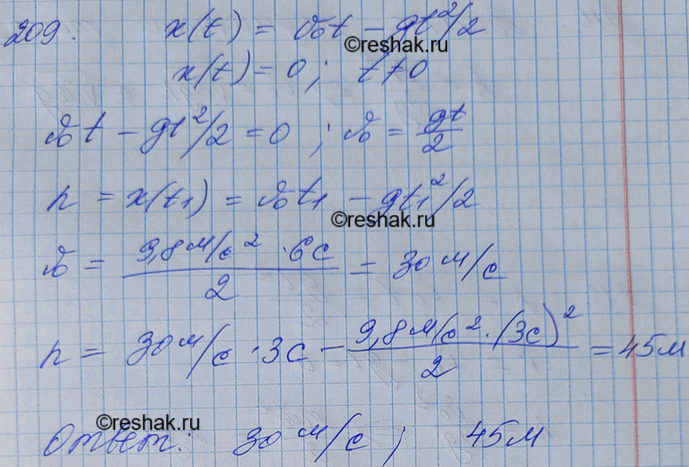 209. x(t) = v₀t - gt²/2
©reshak.ru
x(t) = 0; t ≠ 0
v₀t - gt²/2 = 0; v₀ = gt/2
h = x(t₁) = v₀t₁ - gt₁²/2
©reshak.ru
v₀ = 9,8 м/с² · 6с / 2 = 30 м/с
h = 30 м/с · 3с - 9,8 м/с² · (3с)² / 2 = 45 м
©reshak.ru
Ответ: 30 м/с; 45 м